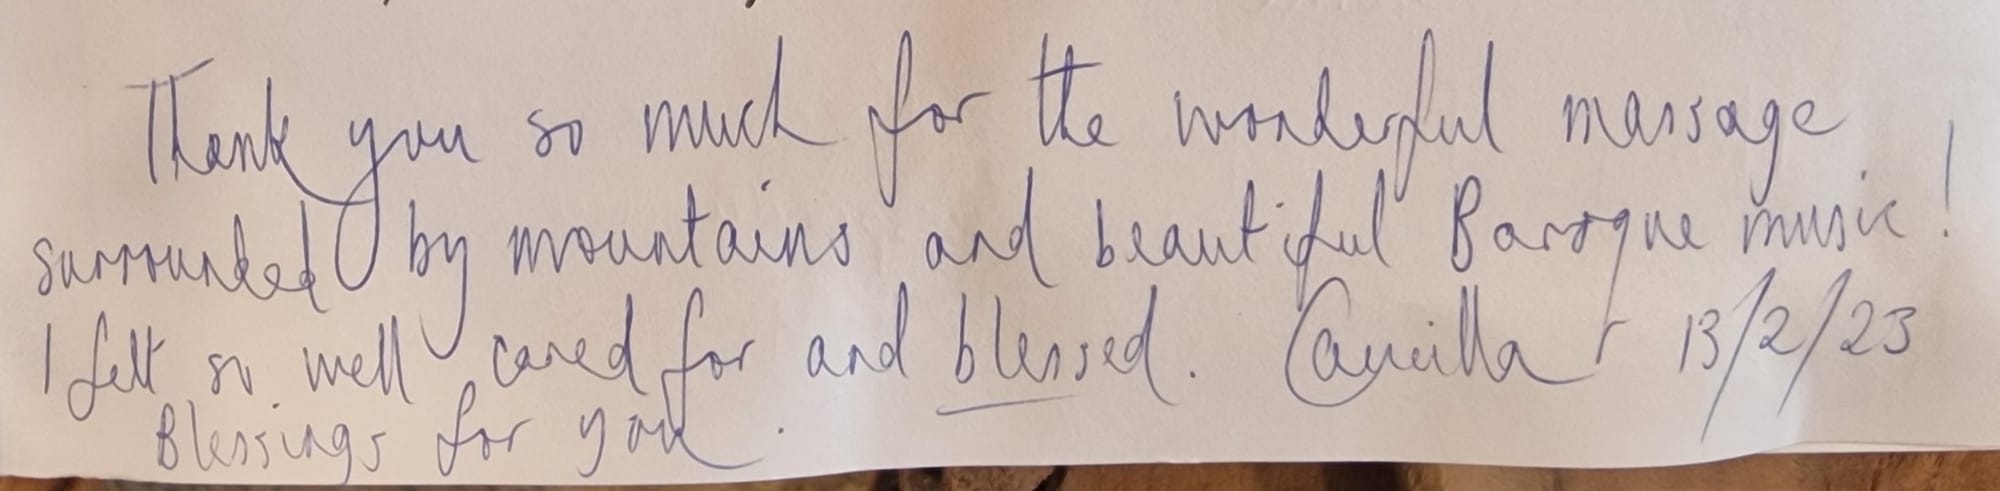 Thank you so much for the wonderful massage
surrounded by mountains and beautiful Baroque music!
I felt so well cared for and blessed. 13/2/23
Blessings for you.